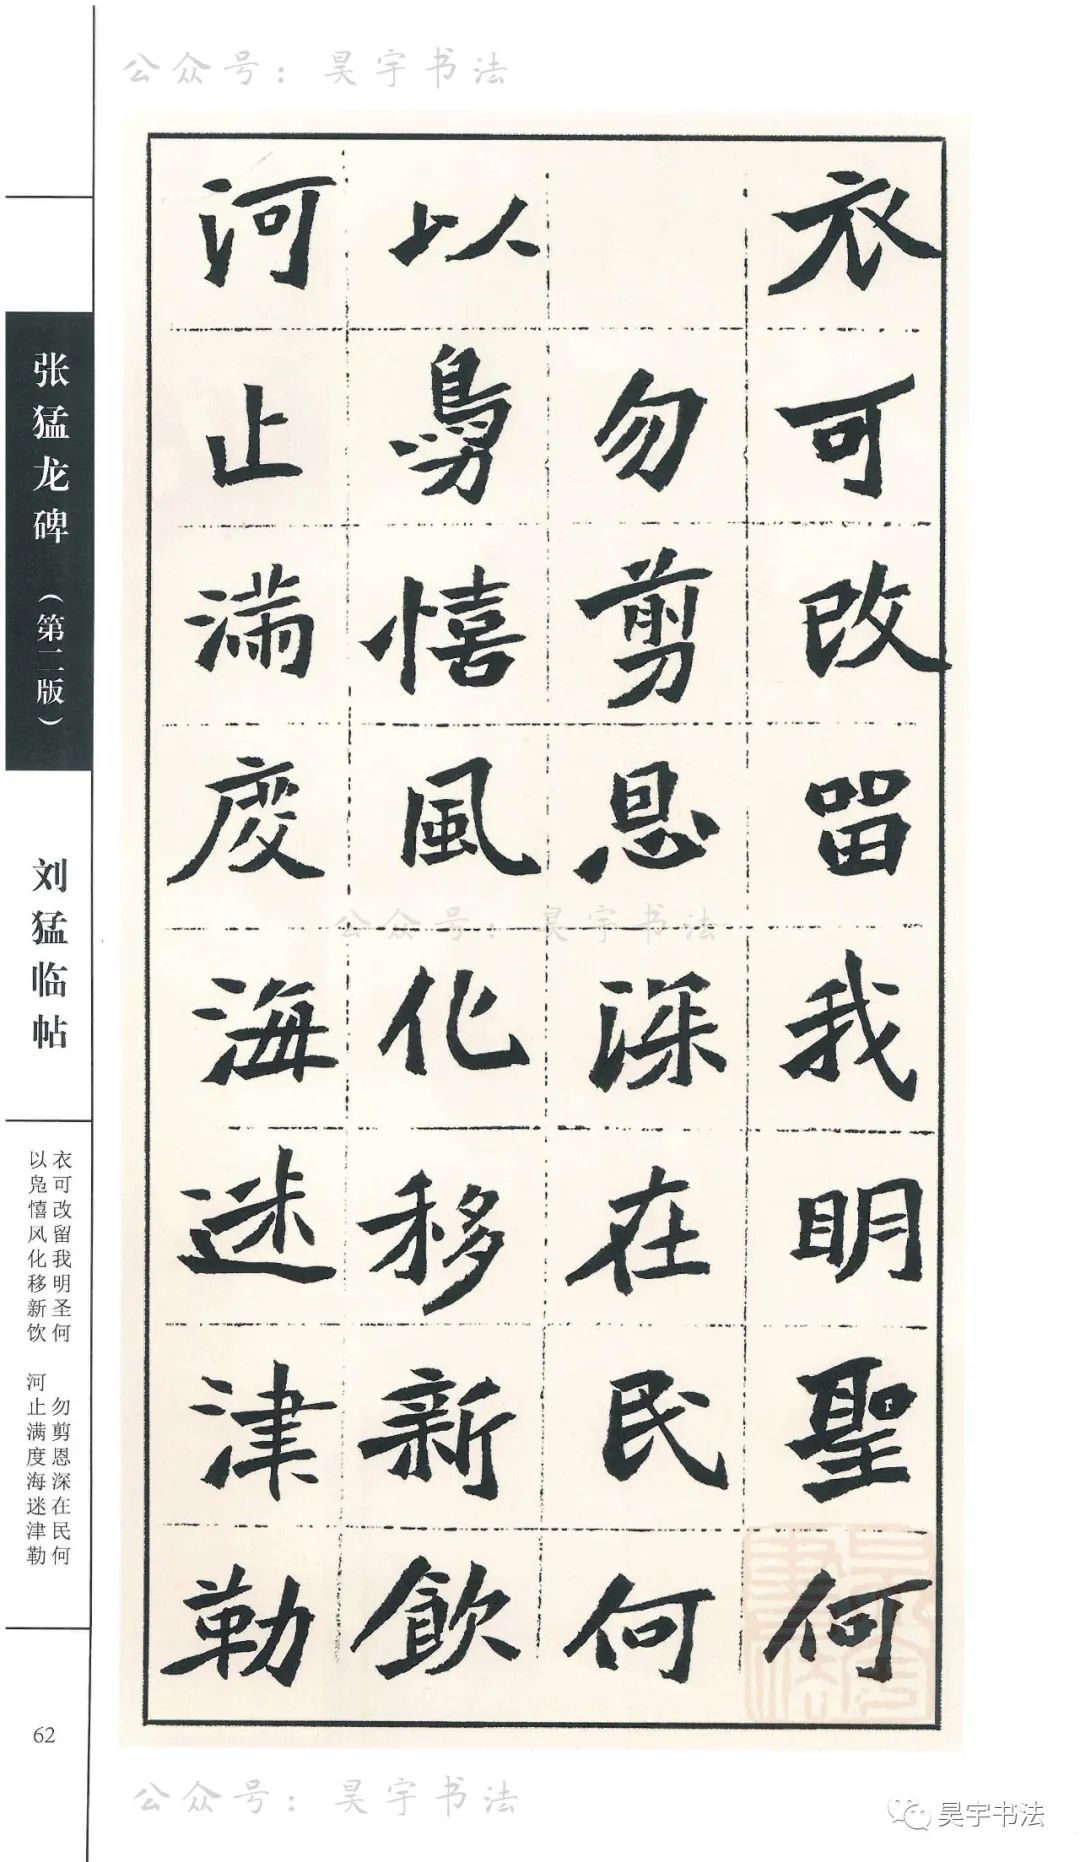 公众号：昊宇书法
衣可改留我明聖何
勿剪恩深在民何
以鳧憘風化移新飲
河止满度海迷津勒
张猛龙碑（第二版）
刘猛临帖
衣可改留我明圣何　勿剪恩深在民何
以凫憘风化移新饮　河止满度海迷津勒
62
公众号：昊宇书法
公众号：昊宇书法
昊宇书法